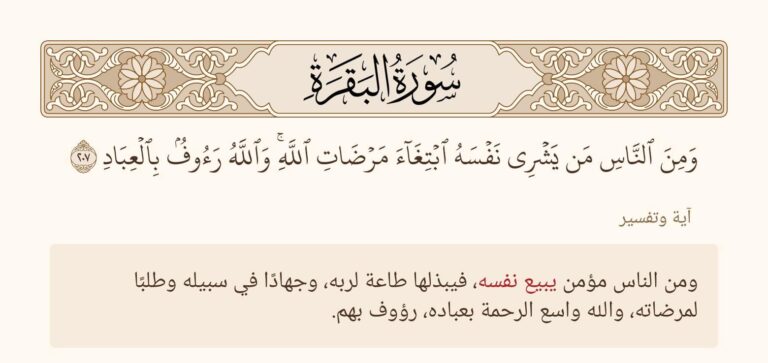 سُورَةُ البَقَرَةِ
وَمِنَ ٱلنَّاسِ مَن يَشْرِى نَفْسَهُ ٱبْتِغَآءَ مَرْضَاتِ ٱللَّهِ ۚ وَٱللَّهُ رَءُوفٌۢ بِٱلْعِبَادِ ٢٠٧
آية وتفسير
ومن الناس مؤمن يبيع نفسه، فيبذلها طاعة لربه، وجهادًا في سبيله وطلبًا
لمرضاته، والله واسع الرحمة بعباده، رؤوف بهم.